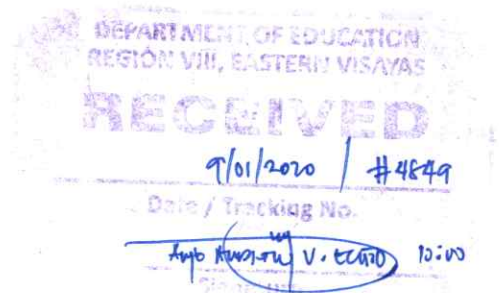 DEPARTMENT OF EDUCATION
REGION VIII, EASTERN VISAYAS
RECEIVED
9/01/2020 / #4849
Date / Tracking No.
V. 10:00